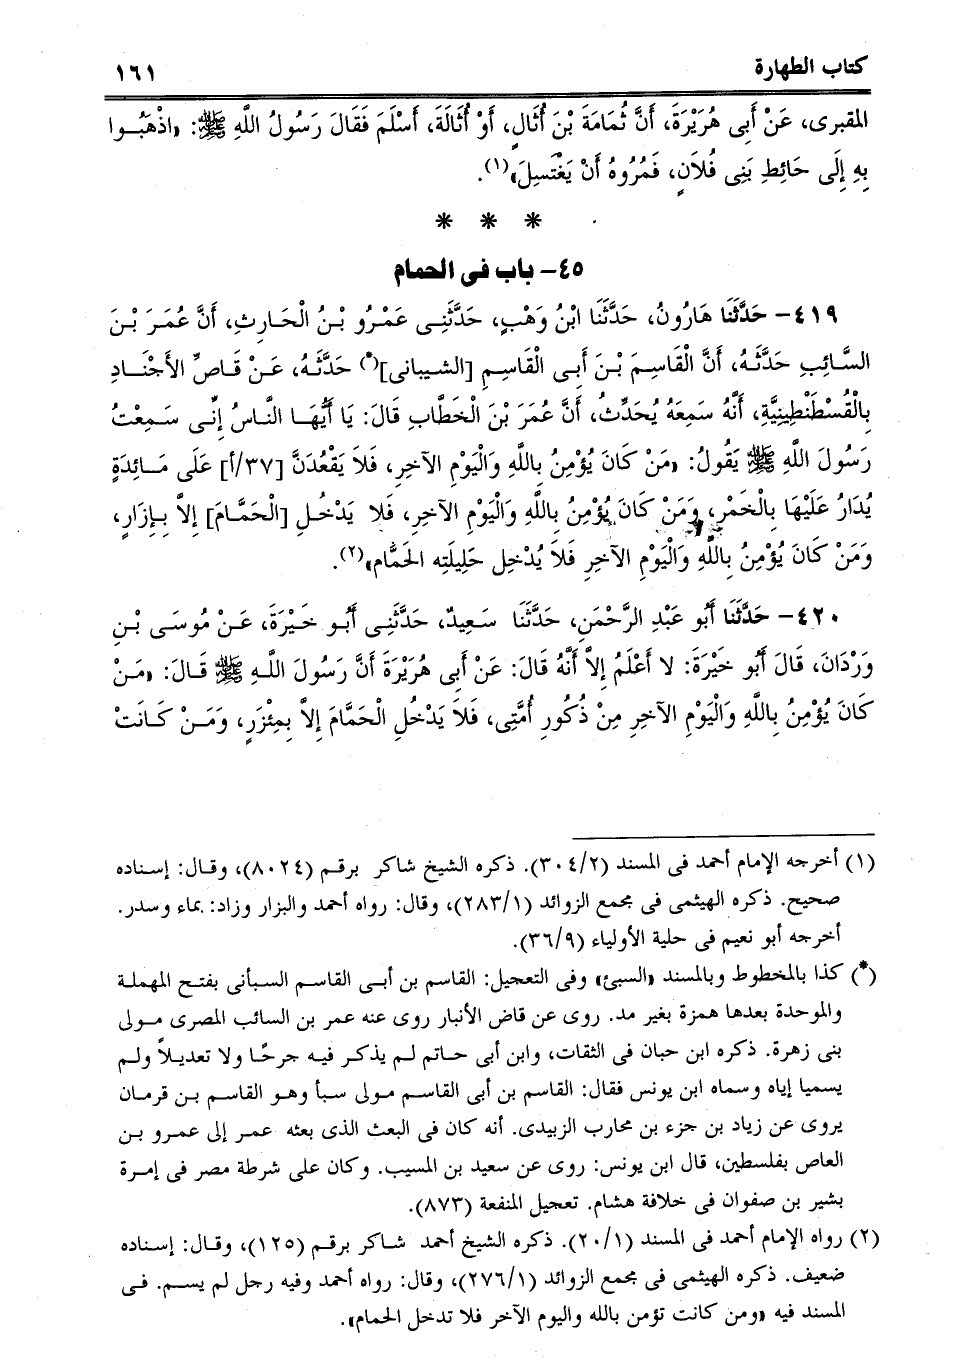 كتاب الطهارة ١٦١
المقبرى، عَنْ أَبِى هُرَيْرَةَ، أَنَّ ثُمَامَةَ بْنَ أُثَالٍ، أَوْ أُثَالَةَ، أَسْلَمَ فَقَالَ رَسُولُ اللَّهِ ﷺ: «اذْهَبُوا
بِهِ إِلَى حَائِطِ بَنِى فُلاَنٍ، فَمُرُوهُ أَنْ يَغْتَسِلَ»(١).
* * *
٤٥- باب فى الحمام
٤١٩- حَدَّثَنَا هَارُونُ، حَدَّثَنَا ابْنُ وَهْبٍ، حَدَّثَنِى عَمْرُو بْنُ الْحَارِثِ، أَنَّ عُمَرَ بْنَ
السَّائِبِ حَدَّثَهُ، أَنَّ الْقَاسِمَ بْنَ أَبِى الْقَاسِمِ [الشيبانى](*) حَدَّثَهُ، عَنْ قَاصِّ الأَجْنَادِ
بِالْقُسْطَنْطِينِيَّةِ، أَنَّهُ سَمِعَهُ يُحَدِّثُ، أَنَّ عُمَرَ بْنَ الْخَطَّابِ قَالَ: يَا أَيُّهَا النَّاسُ إِنِّى سَمِعْتُ
رَسُولَ اللَّهِ ﷺ يَقُولُ: «مَنْ كَانَ يُؤْمِنُ بِاللَّهِ وَالْيَوْمِ الآخِرِ، فَلاَ يَقْعُدَنَّ [٣٧/أ] عَلَى مَائِدَةٍ
يُدَارُ عَلَيْهَا بِالْخَمْرِ، وَمَنْ كَانَ يُؤْمِنُ بِاللَّهِ وَالْيَوْمِ الآخِرِ، فَلا يَدْخُلِ [الْحَمَّامَ] إِلاَّ بِإِزَارٍ،
وَمَنْ كَانَ يُؤْمِنُ بِاللَّهِ وَالْيَوْمِ الآخِرِ فَلاَ يُدْخِل حَلِيلَتِه الحَمَّام»(٢).
٤٢٠- حَدَّثَنَا أَبُو عَبْدِ الرَّحْمَنِ، حَدَّثَنَا سَعِيدٌ، حَدَّثَنِى أَبُو خَيْرَةَ، عَنْ مُوسَى بْنِ
وَرْدَانَ، قَالَ أَبُو خَيْرَةَ: لا أَعْلَمُ إِلاَّ أَنَّهُ قَالَ: عَنْ أَبِى هُرَيْرَةَ أَنَّ رَسُولَ اللَّهِ ﷺ قَالَ: «مَنْ
كَانَ يُؤْمِنُ بِاللَّهِ وَالْيَوْمِ الآخِرِ مِنْ ذُكُورِ أُمَّتِى، فَلاَ يَدْخُلِ الْحَمَّامَ إِلاَّ بِمِئْزَرٍ، وَمَنْ كَانَتْ
(١) أخرجه الإمام أحمد فى المسند (٣٠٤/٢). ذكره الشيخ شاكر برقم (٨٠٢٤)، وقال: إسناده
صحيح. ذكره الهيثمى فى مجمع الزوائد (٢٨٣/١)، وقال: رواه أحمد والبزار وزاد: بماء وسدر.
أخرجه أبو نعيم فى حلية الأولياء (٣٦/٩).
(*) كذا بالمخطوط وبالمسند «السبئ» وفى التعجيل: القاسم بن أبى القاسم السبأنى بفتح المهملة
والموحدة بعدها همزة بغير مد. روى عن قاض الأنبار روى عنه عمر بن السائب المصرى مولى
بنى زهرة. ذكره ابن حبان فى الثقات، وابن أبى حاتم لم يذكر فيه جرحًا ولا تعديلاً ولم
يسميا إياه وسماه ابن يونس فقال: القاسم بن أبى القاسم مولى سبأ وهو القاسم بن قرمان
يروى عن زياد بن جزء بن محارب الزبيدى. أنه كان فى البعث الذى بعثه عمر إلى عمرو بن
العاص بفلسطين، قال ابن يونس: روى عن سعيد بن المسيب. وكان على شرطة مصر فى إمرة
بشير بن صفوان فى خلافة هشام. تعجيل المنفعة (٨٧٣).
(٢) رواه الإمام أحمد فى المسند (٢٠/١). ذكره الشيخ أحمد شاكر برقم (١٢٥)، وقال: إسناده
ضعيف. ذكره الهيثمى فى مجمع الزوائد (٢٧٦/١)، وقال: رواه أحمد وفيه رجل لم يسم. فى
المسند فيه «ومن كانت تؤمن بالله واليوم الآخر فلا تدخل الحمام».